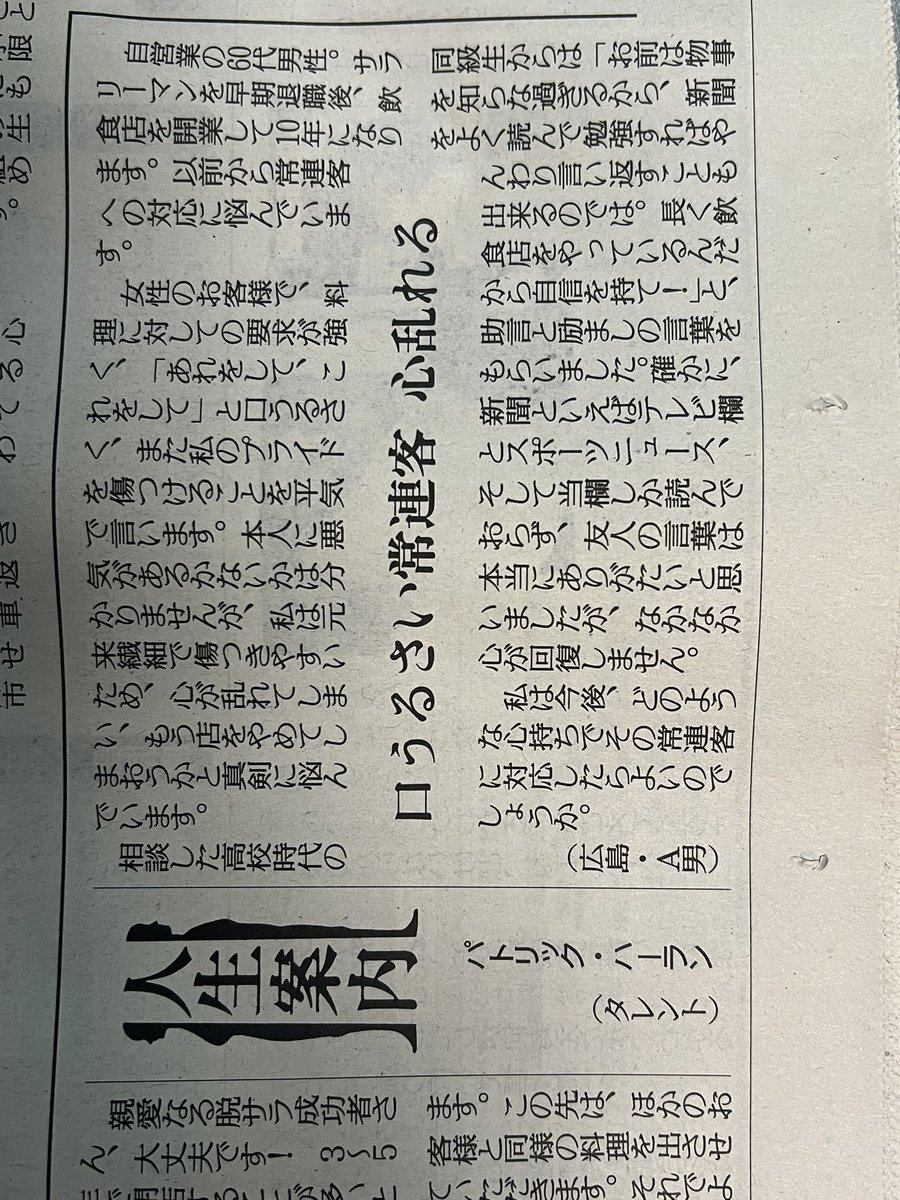 口うるさい常連客 心乱れる
自営業の60代男性。サラ
リーマンを早期退職後、飲
食店を開業して10年になり
ます。以前から常連客
への対応に悩んでいま
す。
女性のお客様で、料
理に対しての要求が強
く、「あれをして、こ
れをして」と口うるさ
く、また私のプライド
を傷つけることを平気
で言います。本人に悪
気があるかないかは分
かりませんが、私は元
来繊細で傷つきやすい
ため、心が乱れてしま
い、もう店をやめてし
まおうかと真剣に悩ん
でいます。
相談した高校時代の
同級生からは「お前は物事
を知らな過ぎるから、新聞
をよく読んで勉強すればや
んわり言い返すことも
出来るのでは。長く飲
食店をやっているんだ
から自信を持て！」と、
助言と励ましの言葉を
もらいました。確かに、
新聞といえばテレビ欄
とスポーツニュース、
そして当欄しか読んで
おらず、友人の言葉は
本当にありがたいと思
いましたが、なかなか
心が回復しません。
私は今後、どのよう
な心持ちでその常連客
に対応したらよいので
しょうか。
（広島・A男）
人生案内
パトリック・ハーラン
（タレント）
親愛なる脱サラ成功者さ
ん、大丈夫です！ 3～5
ます。この先は、ほかのお
客様と同様の料理を出させ
ていただきます。それでよ